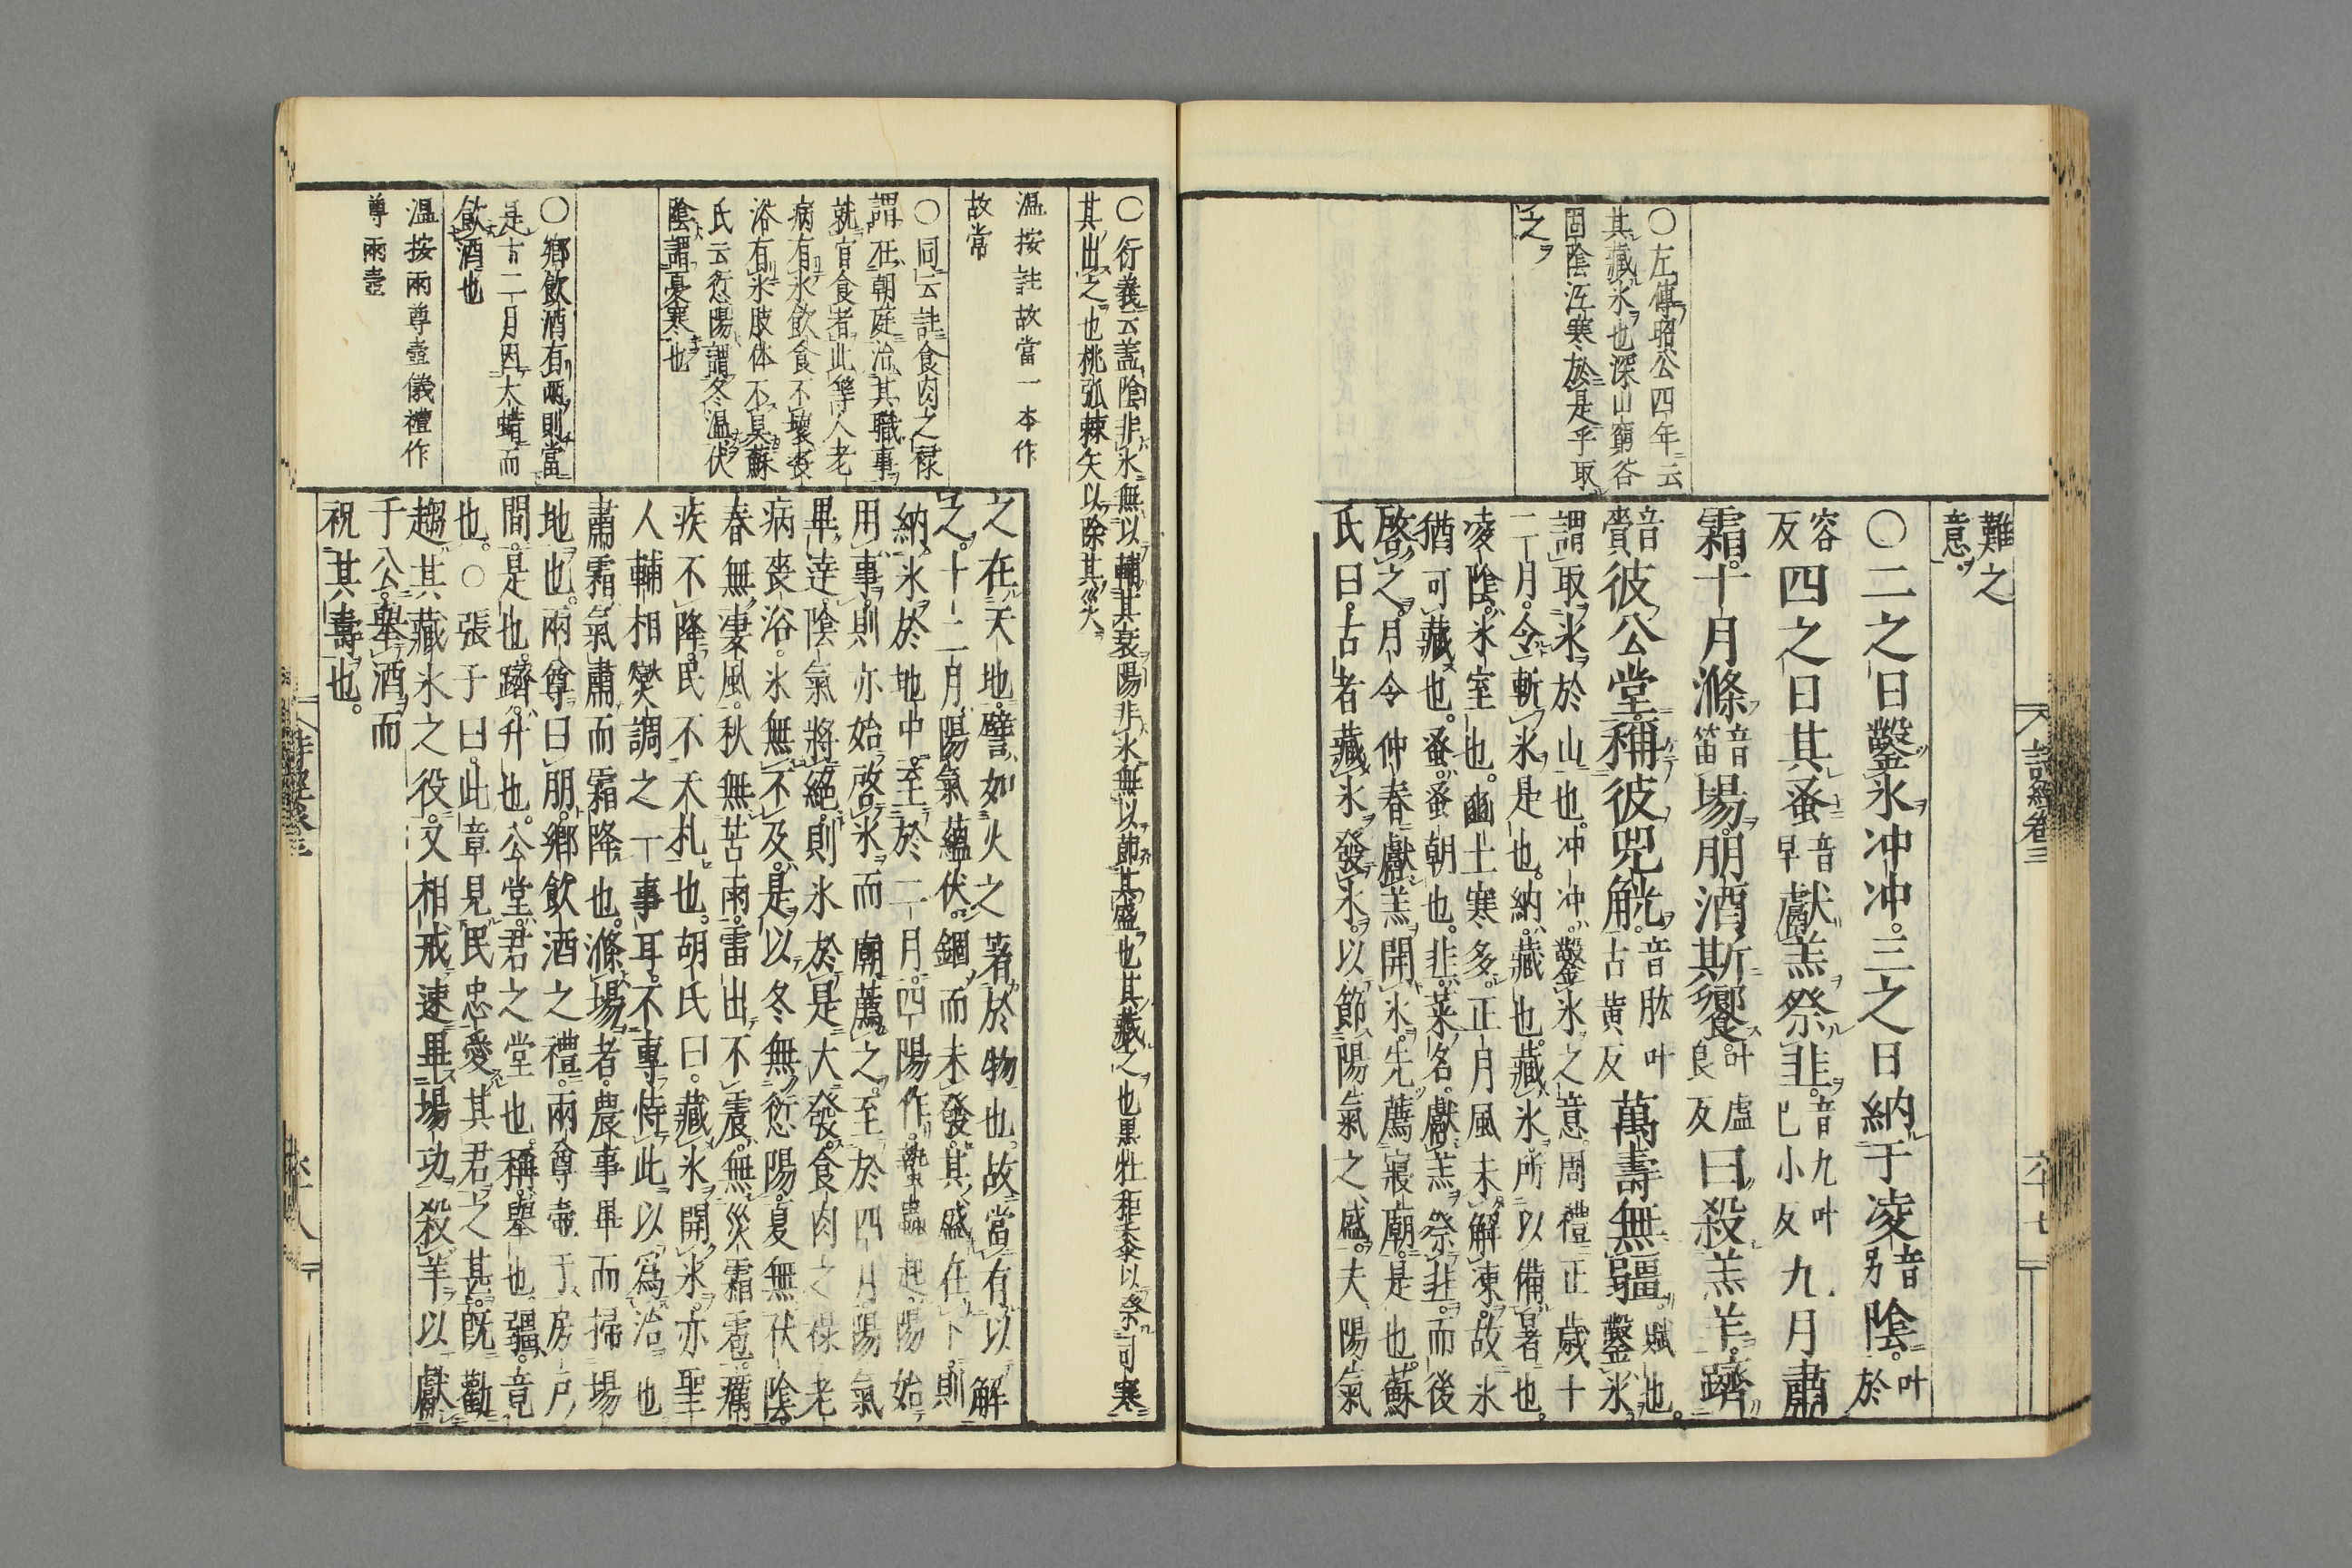 詩經卷三
六十七
○左傳昭公四年云
其藏氷也深山窮谷
固陰沍寒於是乎取
之
難之
意
○二之日鑿氷冲冲三之日納于凌音另陰叶於
容反四之日其蚤音早獻羔祭韭音九叶已小反九月肅
霜十月滌音笛場朋酒斯饗叶虛良反曰殺羔羊躋
音賷彼公堂稱彼兕觥音肱叶古黃反萬壽無疆賦也鑿氷
謂取氷於山也冲冲鑿氷之意周禮正歲十
二月令斬氷是也納藏也藏氷所以備暑也
凌陰氷室也豳土寒多正月風未解凍故氷
猶可藏也蚤蚤朝也韭菜名獻羔祭韭而後
啓之月令仲春獻羔開氷先薦寢廟是也蘇
氏曰古者藏氷發氷以節陽氣之盛夫陽氣
○衍義云盖陰非氷無以輔其衰陽非氷無以節其盛也其藏之也黒牡秬黍以祭司寒
其出之也桃弧棘矢以除其災
温按註故當一本作
故常
○同云註食肉之禄
謂在朝庭治其職事
就官食者此等人老
病有氷飲食不壞喪
浴有氷肢体不臭蘇
氏云愆陽謂冬温伏
陰謂夏寒也
○鄉飲酒有兩則當
是十二月因大蜡而
飲酒也
温按兩尊壺儀禮作
尊兩壺
之在天地譬如火之著於物也故當有以解
之十二月陽氣蘊伏錮而未發其盛在下則
納氷於地中至於二月四陽作蟄蟲起陽始
用事則亦始啓氷而廟薦之至於四月陽氣
畢達陰氣將絕則氷於是大發食肉之祿老
病喪浴氷無不及是以冬無愆陽夏無伏陰
春無凄風秋無苦雨雷出不震無災霜雹癘
疾不降民不夭札也胡氏曰藏氷開氷亦聖
人輔相爕調之一事耳不專恃此以爲治也
肅霜氣肅而霜降也滌場者農事畢而掃場
地也兩尊曰朋鄉飲酒之禮兩尊壺于房戶
間是也躋升也公堂君之堂也稱舉也疆竟
也○張子曰此章見民忠愛其君之甚既勸
趨其藏氷之役又相戒速畢場功殺羊以獻
于公舉酒而
祝其壽也
詩經卷三
六十八